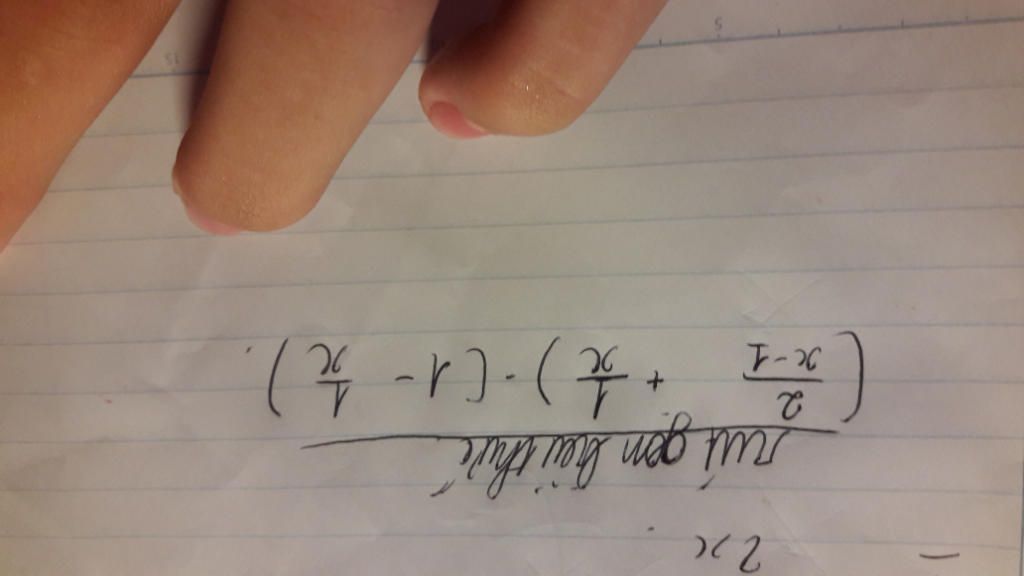 2x
rút gọn biểu thức
( 2/(x-1) + 1/x ) . (1 - 1/x) .
15
5